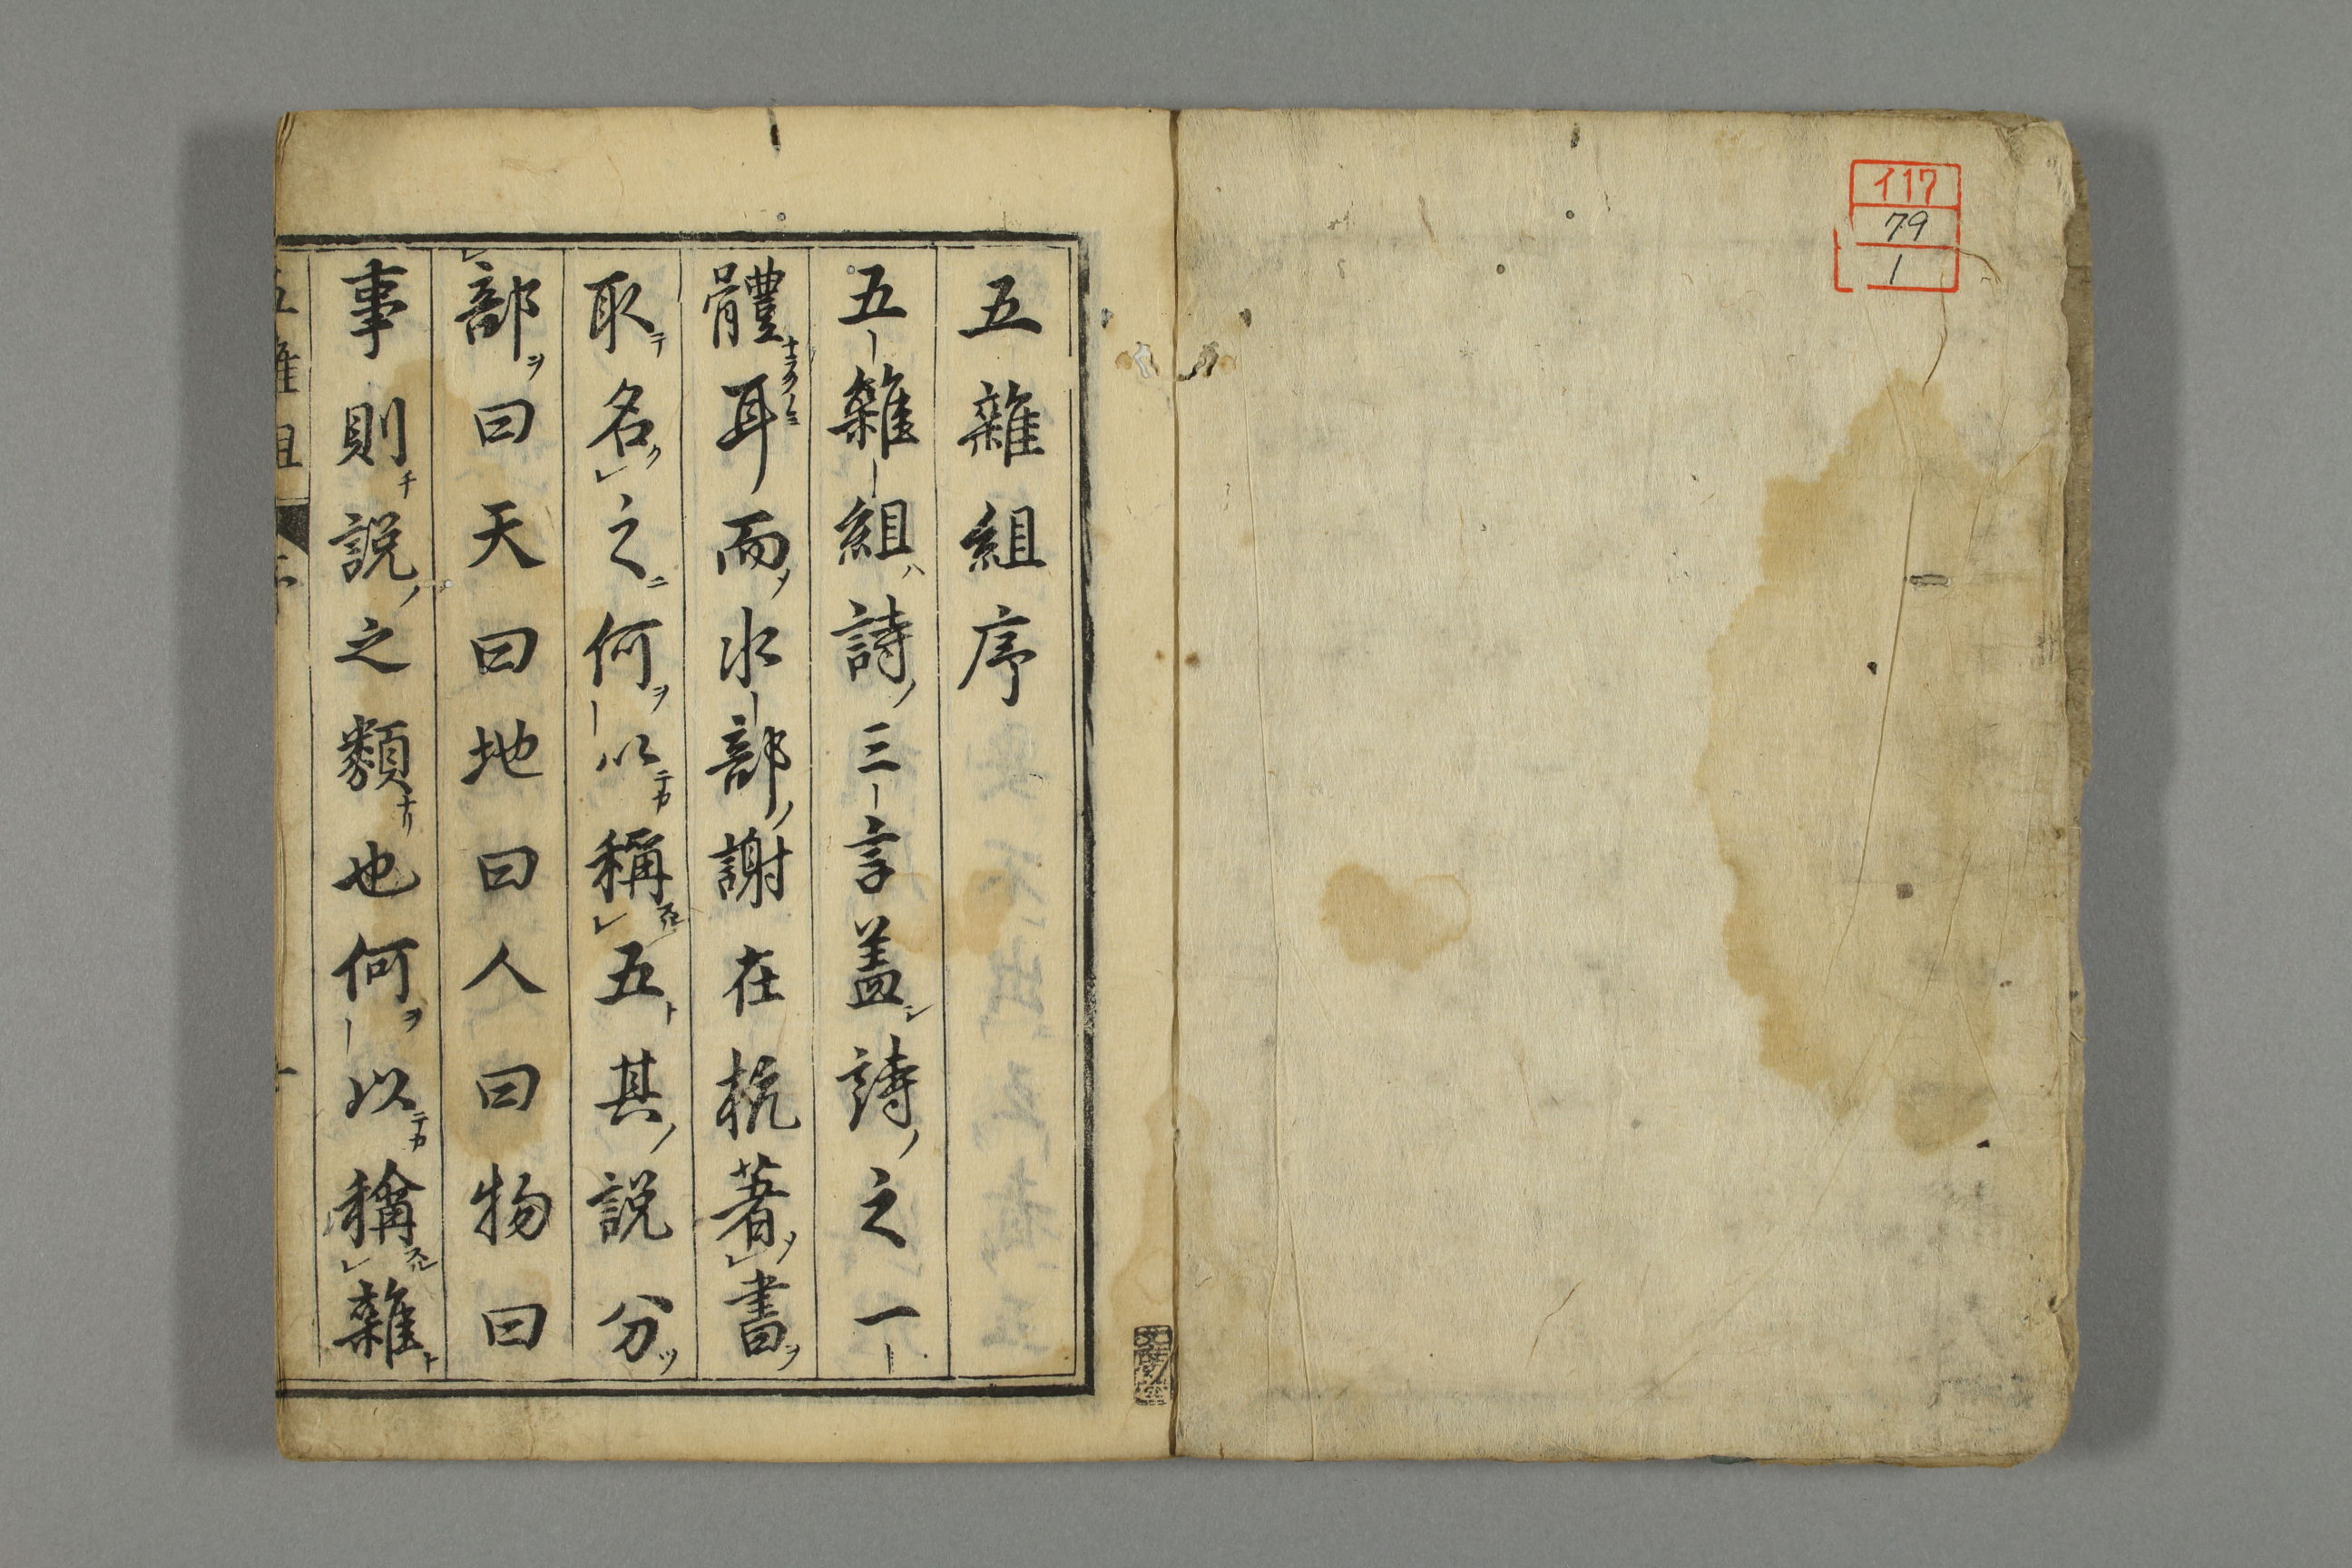 イ17
79
1
五雜組序
五雜組詩三言盖詩之一
體耳而水部謝在杭著書
取名之何以稱五其說分
部曰天曰地曰人曰物曰
事則說之類也何以稱雜